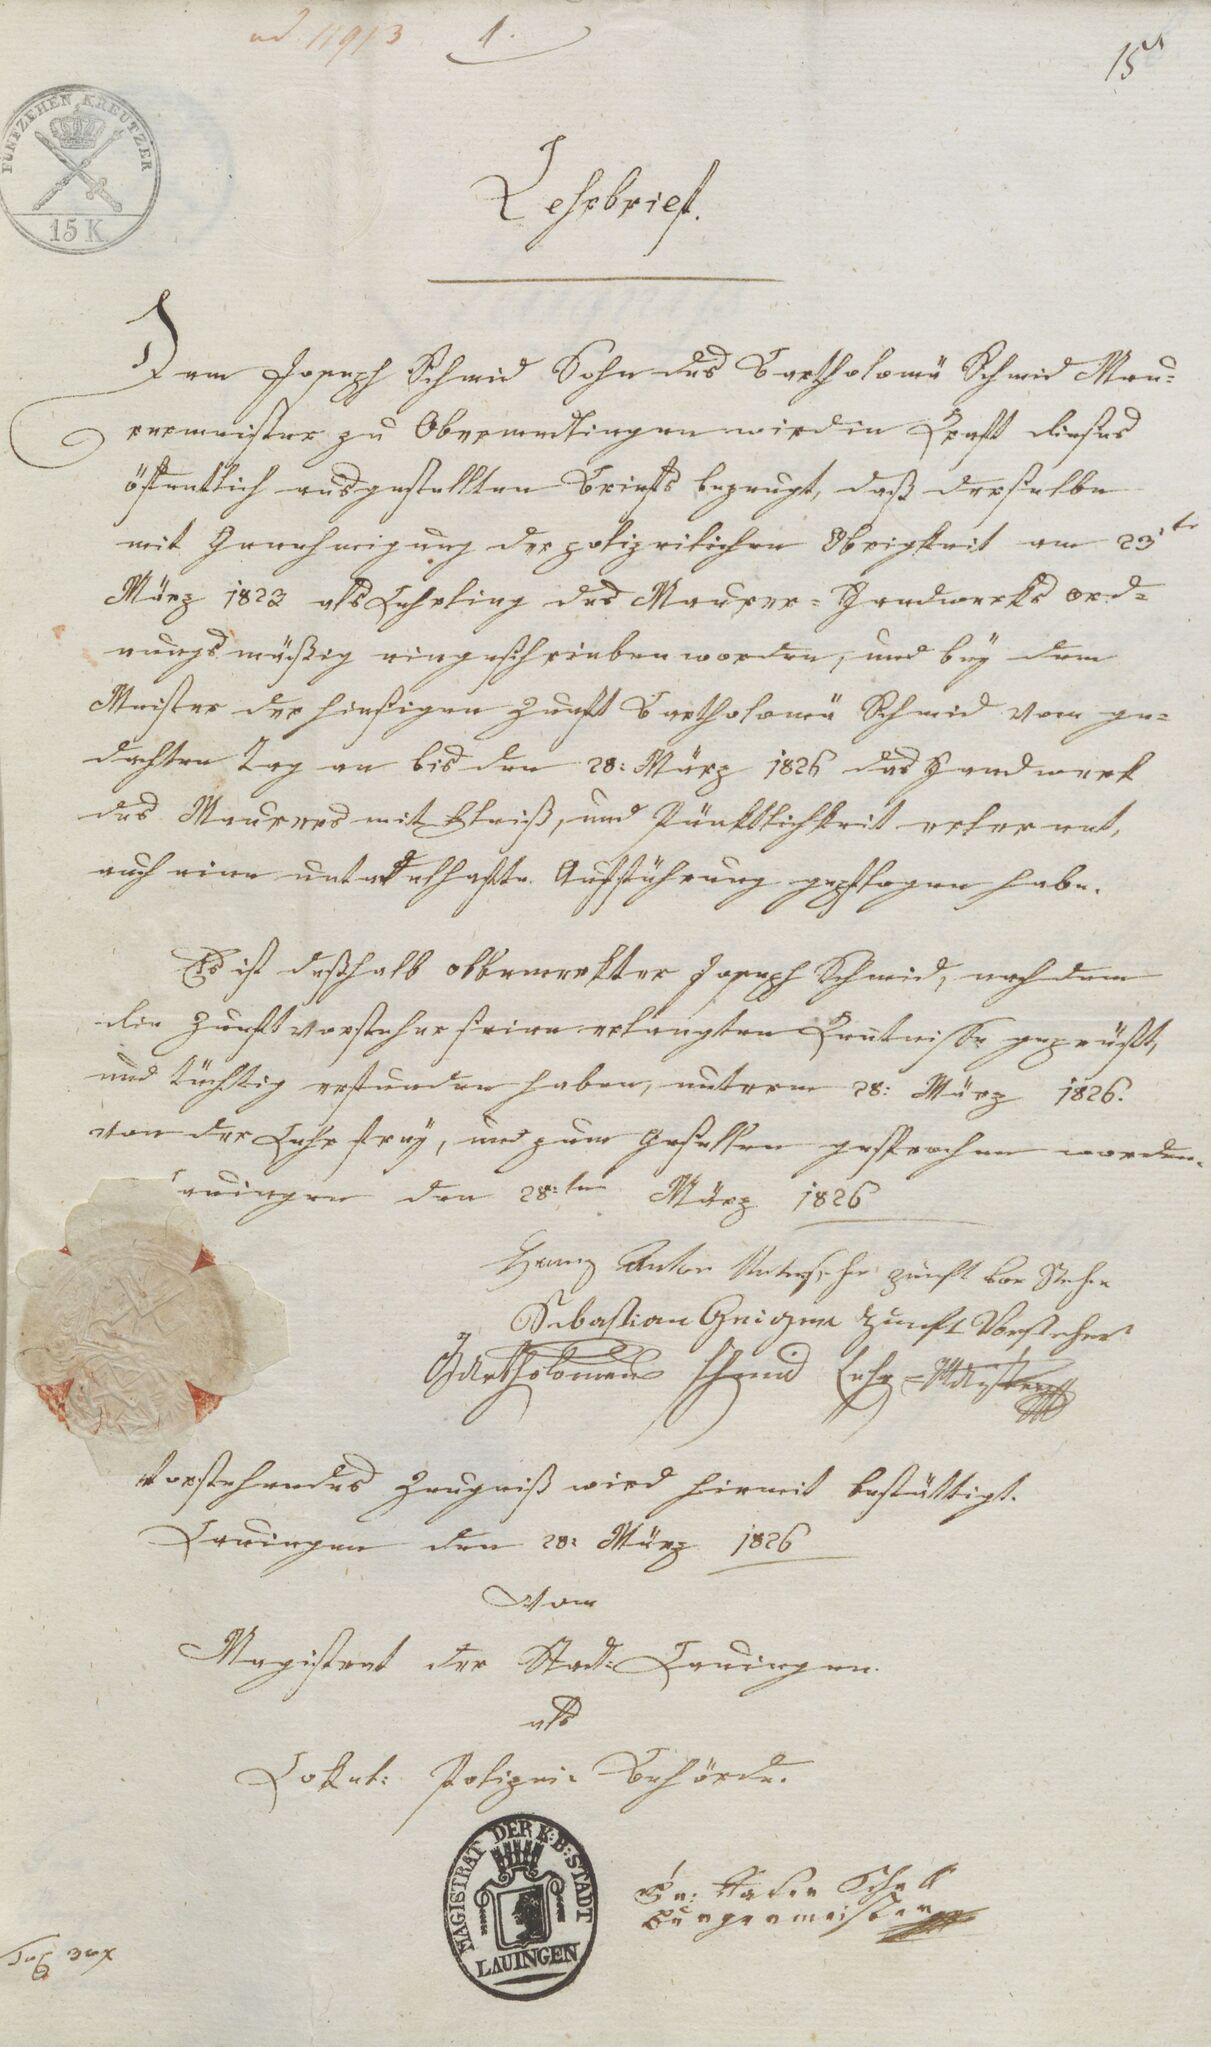 ad. 11913
1.
15
FÜNFZEHEN KREUTZER
15 K
Lehrbrief.
Dem Joseph Schmid Sohn des Bartholomä Schmid Mau=
rermeister zu Obermedlingen wird in Kraft dieses
öffentlich ausgestellten Briefs bezeugt, daß derselbe
mit Genehmigung der polizeilichen Obrigkeit am 23te
März 1823 als Lehrling des Maurer=Handwerks ord=
nungsmäßig eingeschrieben worden, und bey dem
Meister der hiesigen Zunft Bartholomä Schmid vom ge=
dachten Tag an bis den 28: März 1826 das Handwerk
des Maurers mit Fleiß, und Pünktlichkeit erlernet,
auch eine untadelhafte Aufführung gepflogen habe.
Es ist deßhalb obbemerkter Joseph Schmid, nachdem
die Zunftvorsteher seine erlangten Kentnisse geprüft,
und tüchtig erfunden haben, unterm 28: März 1826.
von der Lehr frey, und zum Gesellen gesprochen worden.
Lauingen den 28:ten März 1826
Anton Zunft vor Steher
Sebastian Geiger Zunft Vorsteher
Bartholomeus Schmid Lehr=Meister
Vorstehendes Zeugniß wird hiemit bestättigt.
Lauingen den 28: März 1826
Vom
Magistrat der Stadt Lauingen.
als
Lokal: Polizei: Behörde.
MAGISTRAT DER K: B: STADT
LAUINGEN
Schall
Burgermeister
Tax 3